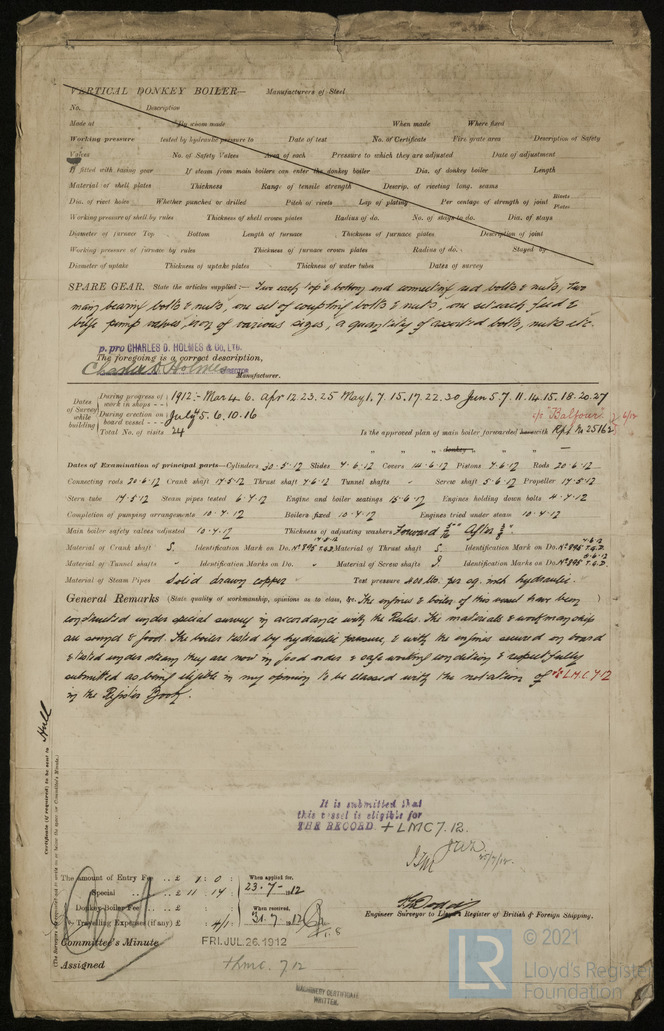 VERTICAL DONKEY BOILER— Manufacturers of Steel
No. Description
Made at By whom made When made Where fixed
Working pressure tested by hydraulic pressure to Date of test No. of Certificate Fire grate area Description of Safety
Valves No. of Safety Valves Area of each Pressure to which they are adjusted Date of adjustment
If fitted with easing gear If steam from main boilers can enter the donkey boiler Dia. of donkey boiler Length
Material of shell plates Thickness Range of tensile strength Descrip. of riveting long. seams
Dia. of rivet holes Whether punched or drilled Pitch of rivets Lap of plating Per centage of strength of joint Rivets Plates
Working pressure of shell by rules Thickness of shell crown plates Radius of do. No. of stays to do. Dia. of stays
Diameter of furnace Top Bottom Length of furnace Thickness of furnace plates Description of joint
Working pressure of furnace by rules Thickness of furnace crown plates Radius of do. Stayed by
Diameter of uptake Thickness of uptake plates Thickness of water tubes Dates of survey
SPARE GEAR. State the articles supplied:— Two each top & bottom end connecting rod bolts & nuts, two
main bearing bolts & nuts, one set of coupling bolts & nuts, one set each feed &
bilge pump valves, iron of various sizes, a quantity of assorted bolts, nuts etc.
p. pro CHARLES D. HOLMES & Co. LTD.
The foregoing is a correct description,
Charles D. Holmes Manufacturer.
Dates of Survey while building
During progress of work in shops - - 1912:- Mar 4. 6. Apr 12. 23. 25 May 1. 7. 15. 17. 22. 30 Jun 5. 7. 11. 14. 15. 18. 20. 27
During erection on board vessel - - - July 5. 6. 10. 16
Total No. of visits 24
"Balfour" 6/12
Is the approved plan of main boiler forwarded herewith Rpt No 25162
" " " donkey " " "
Dates of Examination of principal parts—Cylinders 30.5.12 Slides 7.6.12 Covers 14.6.12 Pistons 7.6.12 Rods 20.6.12
Connecting rods 20.6.12 Crank shaft 17.5.12 Thrust shaft 7.6.12 Tunnel shafts " Screw shaft 5.6.12 Propeller 17.5.12
Stern tube 17.5.12 Steam pipes tested 6.7.12 Engine and boiler seatings 15.6.12 Engines holding down bolts 4.7.12
Completion of pumping arrangements 10.7.12 Boilers fixed 10.7.12 Engines tried under steam 10.7.12
Main boiler safety valves adjusted 10.7.12 Thickness of adjusting washers Forward After
Material of Crank shaft S. Identification Mark on Do. No 895 T.G.D. 17.5.12 Material of Thrust shaft S. Identification Mark on Do. No 895 T.G.D. 7.6.12
Material of Tunnel shafts " Identification Marks on Do. " Material of Screw shafts Identification Marks on Do. No 895 T.G.D. 5.6.12
Material of Steam Pipes Solid drawn copper " Test pressure 400 lbs. per sq. inch hydraulic
General Remarks (State quality of workmanship, opinions as to class, &c. The engines & boiler of this vessel have been
constructed under special survey in accordance with the Rules. The materials & workmanship
are sound & good. The boiler tested by hydraulic pressure, & with the engines secured on board
& tested under steam they are now in good order & safe working condition & respectfully
submitted as being eligible in my opinion to be classed with the notation of + LMC 7.12
in the Register Book.
Certificate (if required) to be sent to Hull
It is submitted that
this vessel is eligible for
THE RECORD + LMC 7.12.
25/7/12.
The amount of Entry Fee .. £ 1 : 0 : When applied for,
Special .. £ 11 : 14 23.7.12
Donkey Boiler Fee .. £ : When received,
Travelling Expenses (if any) £ : 4/1 31.7.12
Engineer Surveyor to Lloyd's Register of British & Foreign Shipping.
Committee's Minute FRI. JUL 26. 1912
Assigned + LMC. 7.12
MACHINERY CERTIFICATE
WRITTEN.
LR © 2021
Lloyd's Register
Foundation